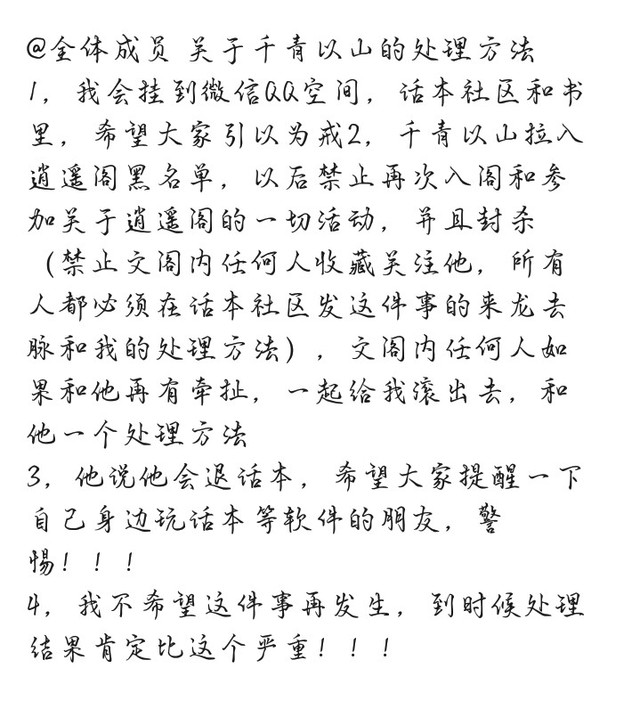 @全体成员 关于千青以山的处理方法
1，我会挂到微信QQ空间，话本社区和书
里，希望大家引以为戒2，千青以山拉入
逍遥阁黑名单，以后禁止再次入阁和参
加关于逍遥阁的一切活动，并且封杀
（禁止文阁内任何人收藏关注他，所有
人都必须在话本社区发这件事的来龙去
脉和我的处理方法），文阁内任何人如
果和他再有牵扯，一起给我滚出去，和
他一个处理方法
3，他说他会退话本，希望大家提醒一下
自己身边玩话本等软件的朋友，警
惕！！！
4，我不希望这件事再发生，到时候处理
结果肯定比这个严重！！！